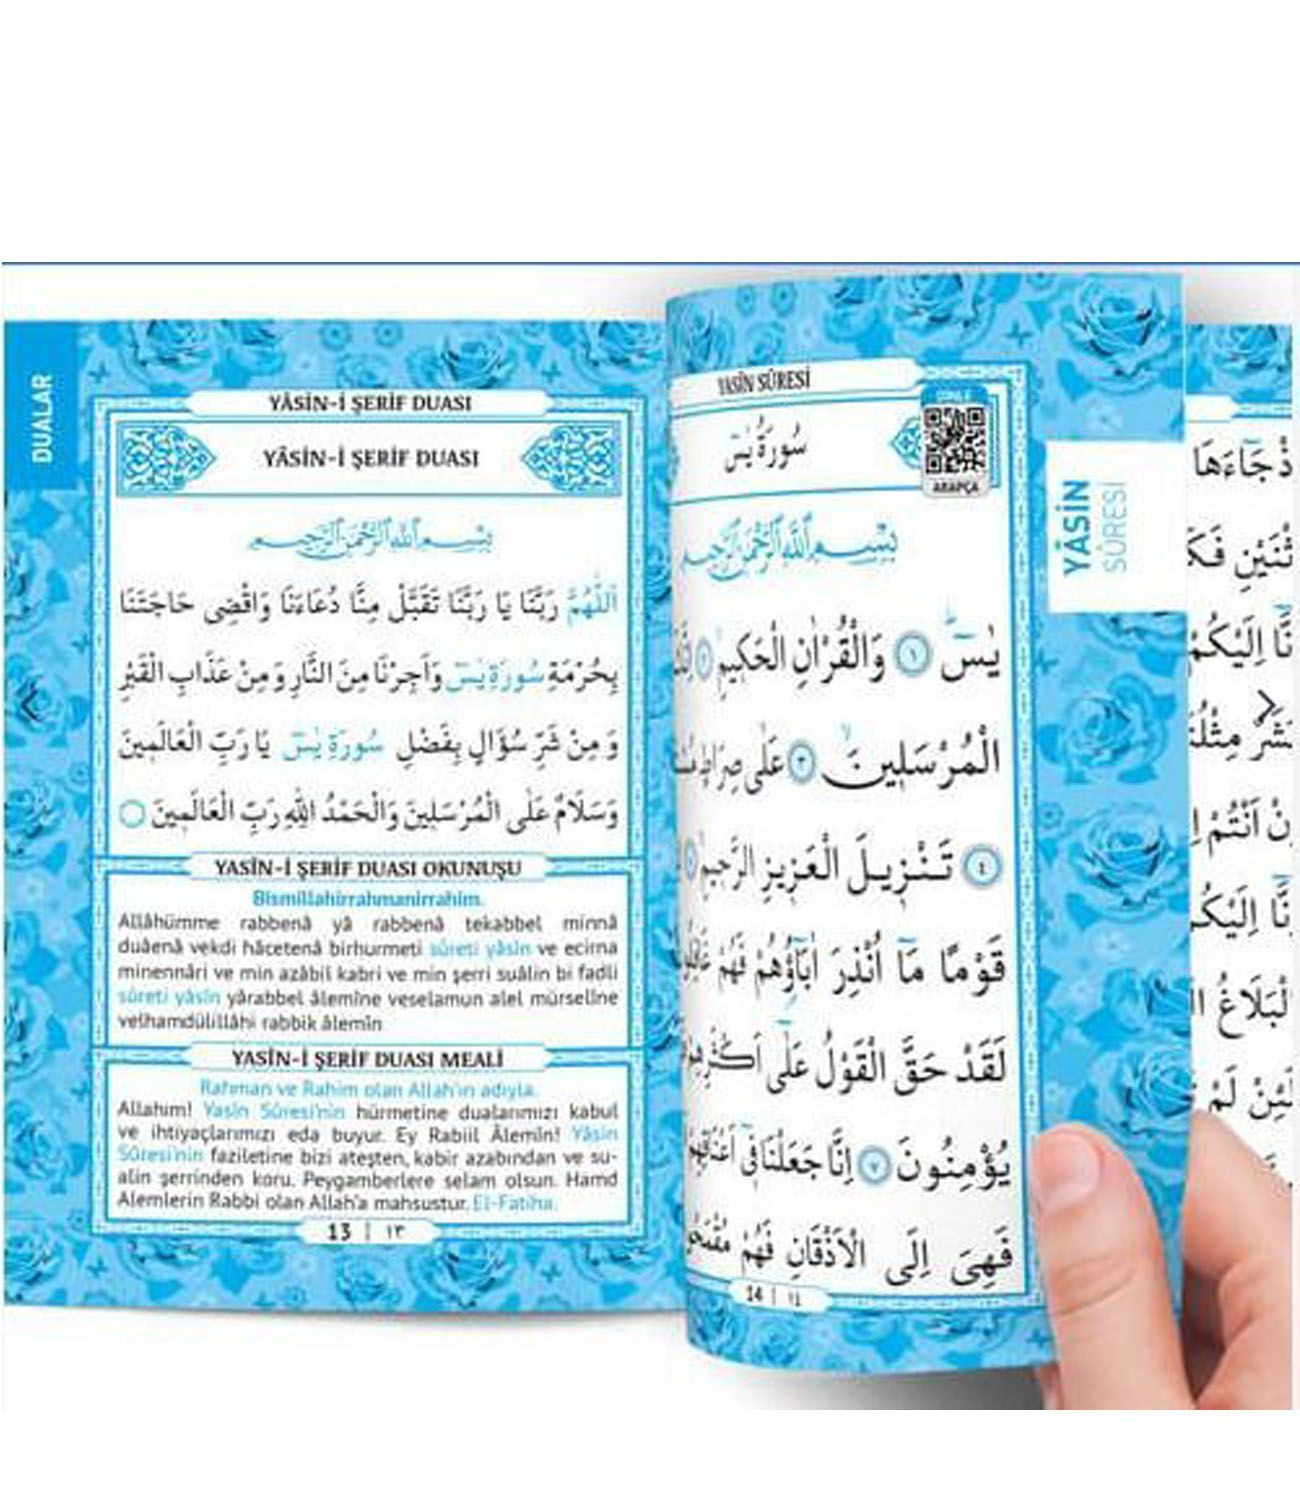 DUALAR
YÂSİN-İ ŞERİF DUASI
YÂSİN-İ ŞERİF DUASI
بِسْمِ اللّٰهِ الرَّحْمٰنِ الرَّحِيمِ
اَللّٰهُمَّ رَبَّنَا يَا رَبَّنَا تَقَبَّلْ مِنَّا دُعَاءَنَا وَاقْضِى حَاجَتَنَا
بِحُرْمَةِ سُورَةِ يٰسٓ وَاَجِرْنَا مِنَ النَّارِ وَمِنْ عَذَابِ الْقَبْرِ
وَمِنْ شَرِّ سُؤَالٍ بِفَضْلِ سُورَةِ يٰسٓ يَا رَبَّ الْعَالَمِينَ
وَسَلَامٌ عَلَى الْمُرْسَلِينَ وَالْحَمْدُ اللّٰهِ رَبِّ الْعَالَمِينَ
YASİN-İ ŞERİF DUASI OKUNUŞU
Bismillahirrahmanirrahim.
Allâhümme rabbenâ yâ rabbenâ tekabbel minnâ
duâenâ vekdi hâcetenâ birhurmeti sûreti yâsin ve ecirna
minennâri ve min azâbil kabri ve min şerri suâlin bi fadli
sûreti yâsin yârabbel âlemîne veselamun alel mürselîne
velhamdülillâhi rabbik âlemîn
YASİN-İ ŞERİF DUASI MEALİ
Rahman ve Rahim olan Allah'ın adıyla.
Allahım! Yasin Sûresi'nin hürmetine dualarımızı kabul
ve ihtiyaçlarımızı eda buyur. Ey Rabiil Âlemin! Yâsin
Sûresi'nin faziletine bizi ateşten, kabir azabından ve su-
alin şerrinden koru. Peygamberlere selam olsun. Hamd
Alemlerin Rabbi olan Allah'a mahsustur. El-Fatiha.
13 | ١٣
YASİN SÛRESİ
سُورَةُ يٰسٓ
ARAPÇA
بِسْمِ اللّٰهِ الرَّحْمٰنِ الرَّحِيمِ
يٰسٓ ١ وَالْقُرْاٰنِ الْحَكِيمِ ٢
الْمُرْسَلِينَ ٣ عَلٰى صِرَاطٍ
٤ تَنْزِيلَ الْعَزِيزِ الرَّحِيمِ
قَوْمًا مَٓا اُنْذِرَ اٰبَٓاؤُهُمْ فَهُمْ
لَقَدْ حَقَّ الْقَوْلُ عَلٰٓى اَكْثَرِهِمْ
يُؤْمِنُونَ ٧ اِنَّا جَعَلْنَا فِٓى اَعْنَاقِهِمْ
فَهِىَ اِلَى الْاَذْقَانِ فَهُمْ
14 | ١٤
YÂSİN
SÛRESİ
جَٓاءَهَا
اِلَيْكُمْ
اَنْتُمْ